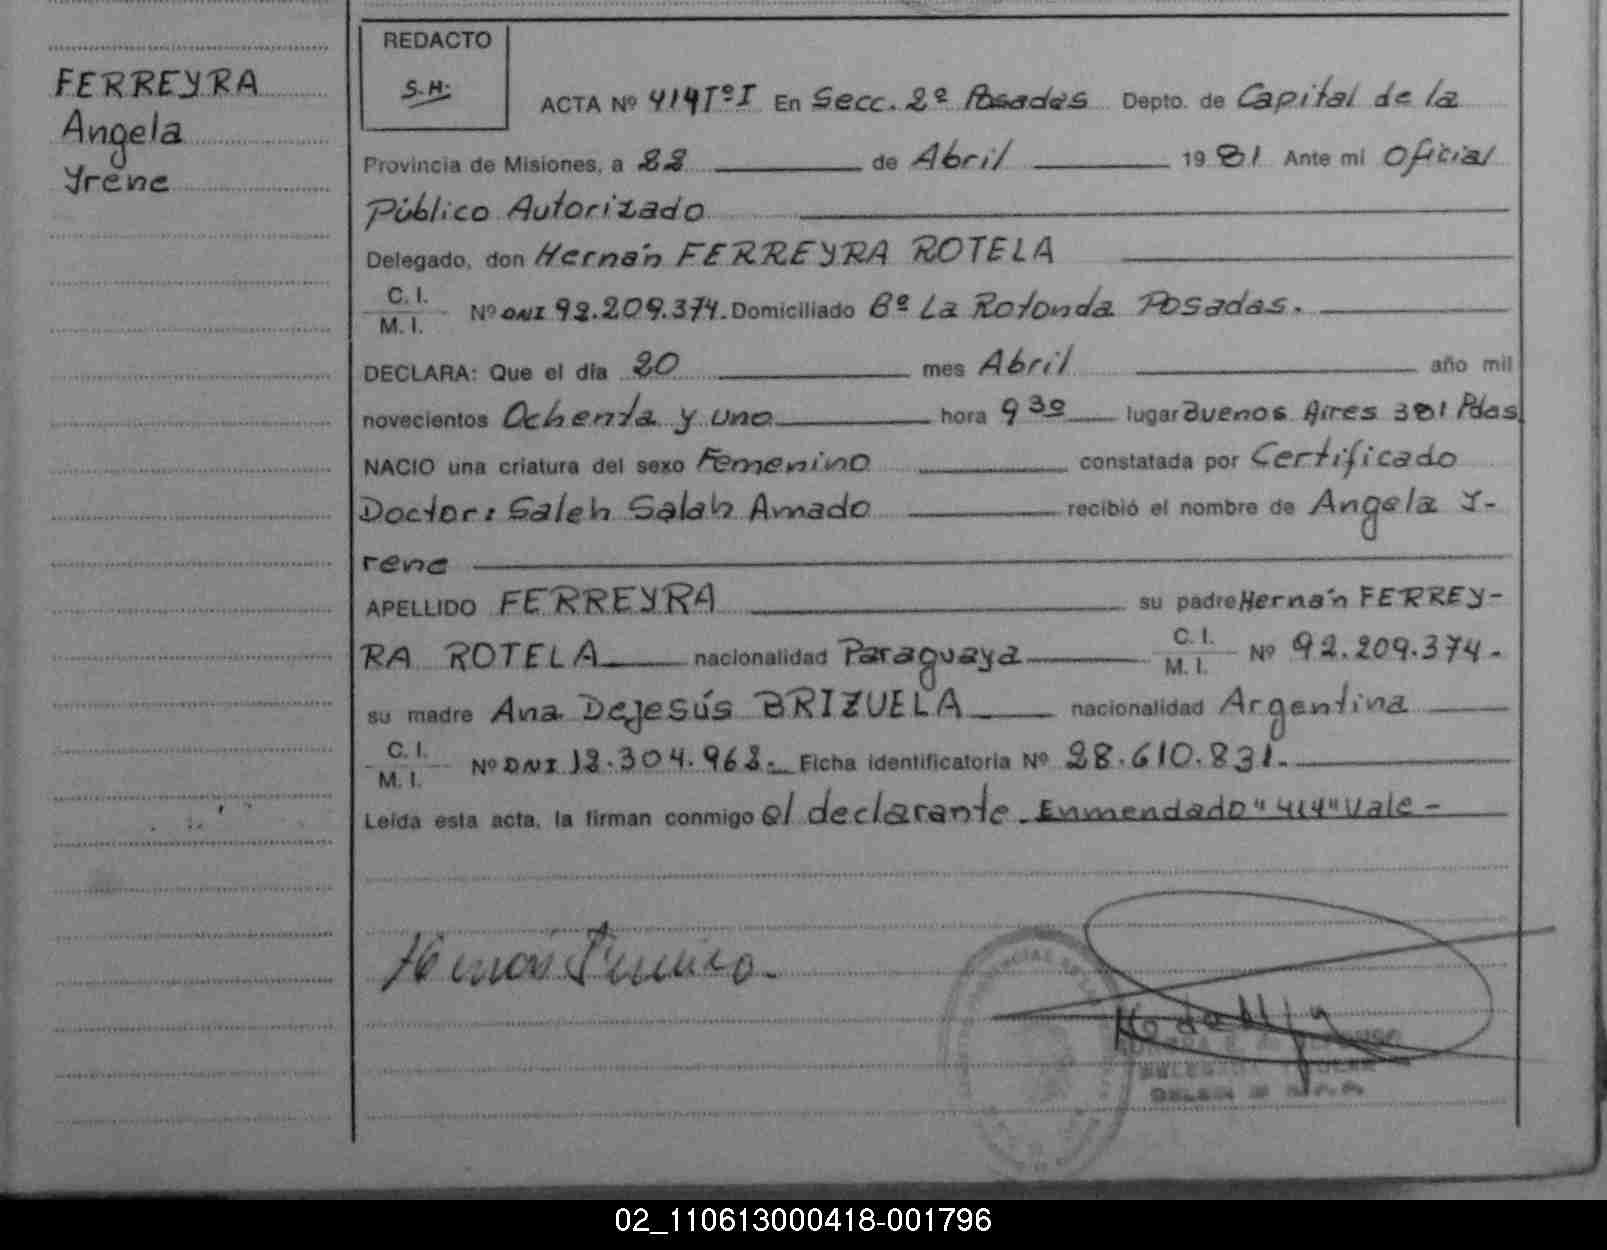 FERREYRA
Angela
Yrene
REDACTO
S.H.
ACTA Nº 414 Tº I En Secc. 2º Posadas Depto. de Capital de la
Provincia de Misiones, a 22 de Abril 1981 Ante mi Oficial
Público Autorizado
Delegado, don Hernán FERREYRA ROTELA
C. I.
M. I. Nº DNI 92.209.374. Domiciliado Bº La Rotonda Posadas.
DECLARA: Que el día 20 mes Abril año mil
novecientos Ochenta y uno hora 9 30 lugar Buenos Aires 381 Pdas
NACIO una criatura del sexo Femenino constatada por Certificado
Doctor: Saleh Salah Amado recibió el nombre de Angela Y-
rene
APELLIDO FERREYRA su padre Hernán FERREY-
RA ROTELA nacionalidad Paraguaya C. I. M. I. Nº 92.209.374-
su madre Ana Dejesús BRIZUELA nacionalidad Argentina
C. I.
M. I. Nº DNI 12.304.962.- Ficha identificatoria Nº 28.610.831.-
Leída esta acta, la firman conmigo el declarante. Enmendado "414" Vale-
02_110613000418-001796